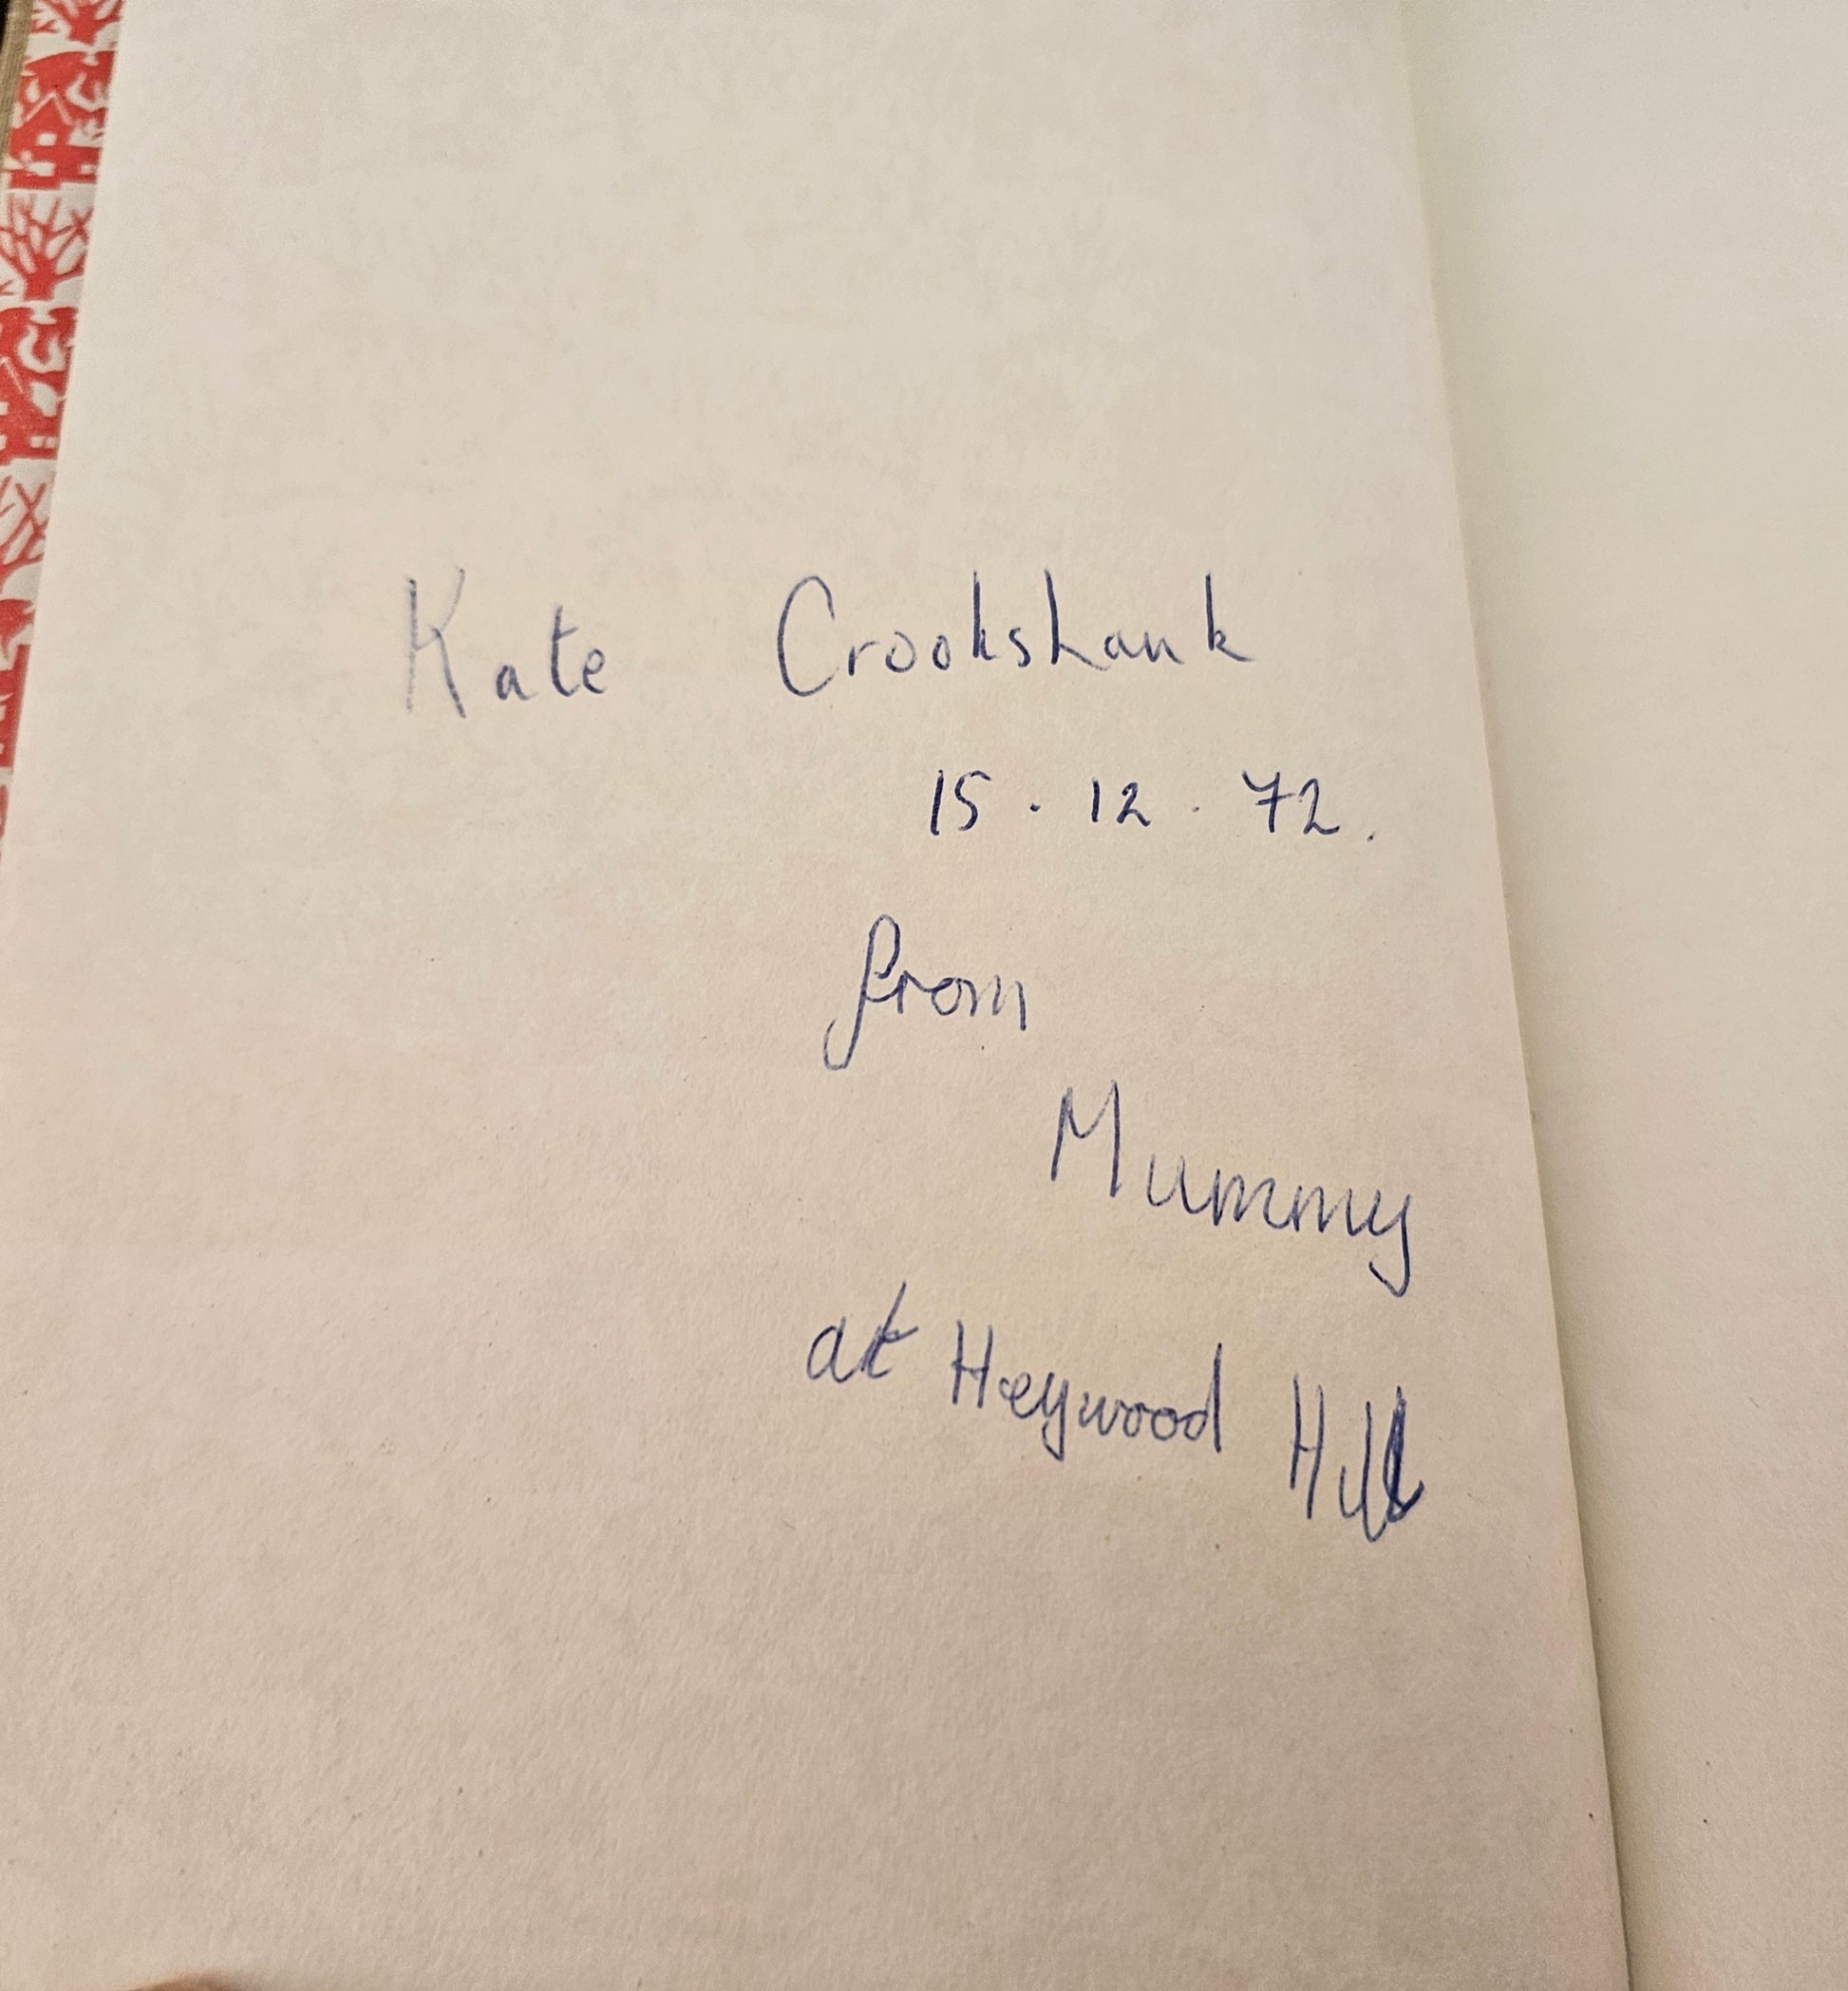 Kate Crookshank
15 . 12 . 72.
from
Mummy
at Heywood Hill